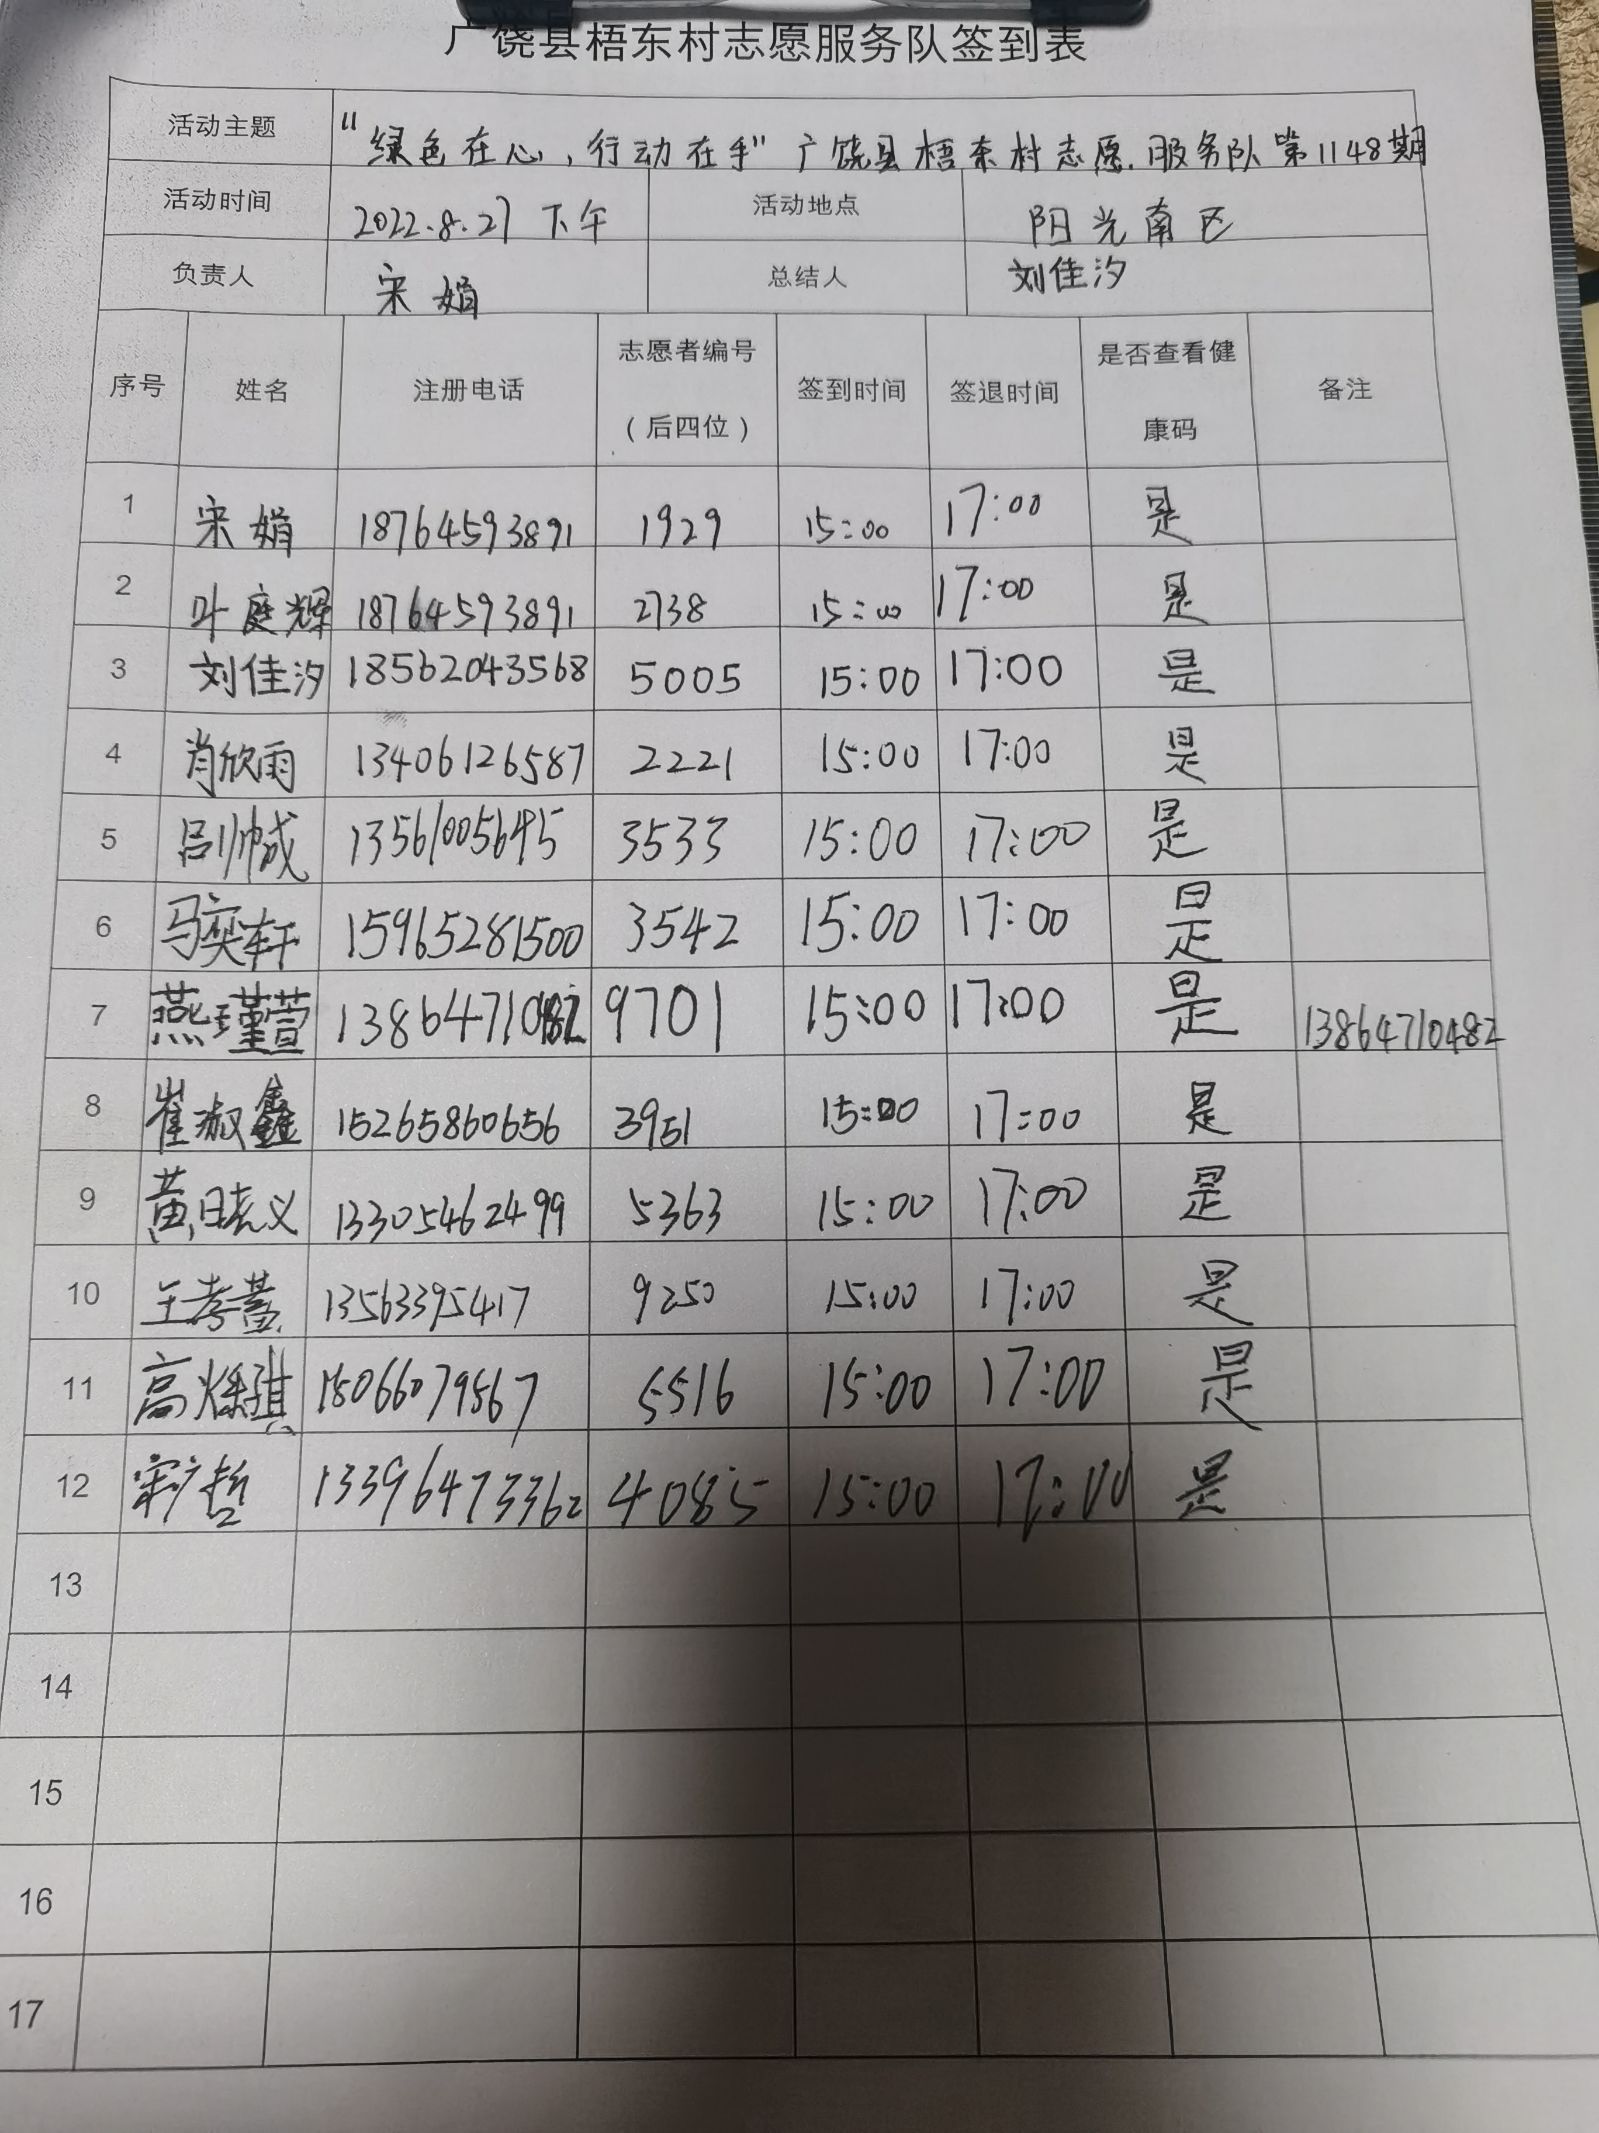 广饶县梧东村志愿服务队签到表
活动主题 "绿色在心,行动在手"广饶县梧东村志愿服务队第1148期
活动时间 2022.8.27 下午 活动地点 阳光南区
负责人 宋娟 总结人 刘佳汐
序号 姓名 注册电话 志愿者编号（后四位） 签到时间 签退时间 是否查看健康码 备注
1 宋娟 18764593891 1929 15:00 17:00 是
2 叶庭辉 18764593891 2738 15:00 17:00 是
3 刘佳汐 18562043568 5005 15:00 17:00 是
4 肖欣雨 13406126587 2221 15:00 17:00 是
5 吕帅城 13561005645 3533 15:00 17:00 是
6 马奕轩 15965281500 3542 15:00 17:00 是
7 燕瑾萱 13864710482 9701 15:00 17:00 是 13864710482
8 崔淑鑫 15265860656 3951 15:00 17:00 是
9 黄晓义 13305462499 5363 15:00 17:00 是
10 王孝 13563395417 9250 15:00 17:00 是
11 高烁琪 18066079567 5516 15:00 17:00 是
12 哲 13396473362 4085 15:00 17:00 是
13
14
15
16
17